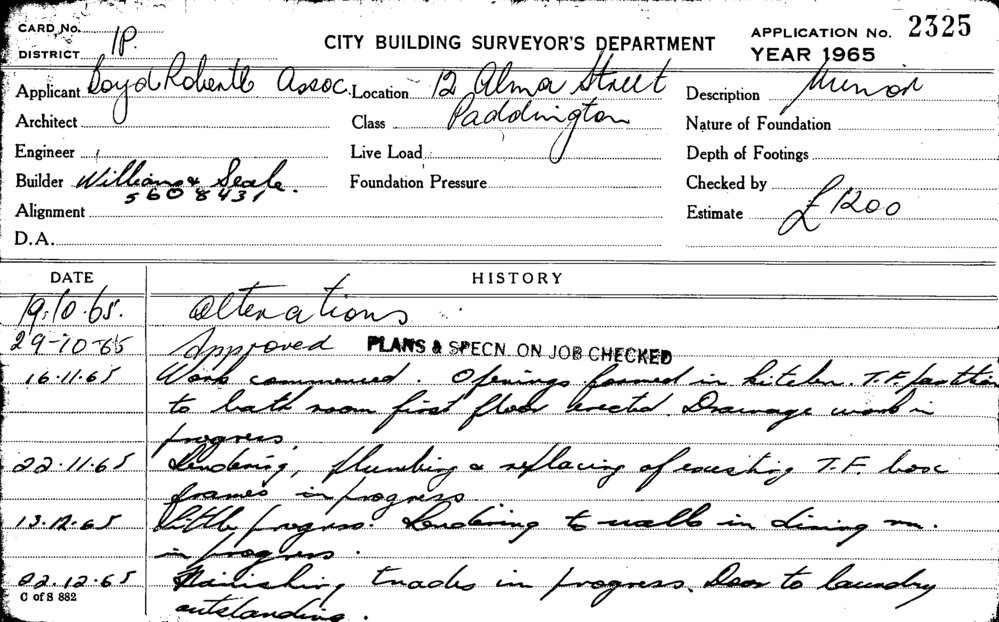 CARD No. CITY BUILDING SURVEYOR'S DEPARTMENT APPLICATION No. 2325
DISTRICT 1P. YEAR 1965
Applicant Boyd Roberts Assoc. Location 12 Alma Street Description Minor
Architect Class Paddington Nature of Foundation
Engineer Live Load Depth of Footings
Builder Williams & Seale. Foundation Pressure Checked by
560 8431
Alignment Estimate £1200
D.A.
DATE HISTORY
19.10.65. Alterations
29-10-65 Approved PLANS & SPECN. ON JOB CHECKED
16.11.65 Work commenced. Openings formed in kitchen. T.F. partition
to bath room first floor erected. Drainage work in
progress.
22.11.65 Rendering, plumbing & replacing of existing T.F. box
frames in progress
13.12.65 Little progress. Rendering to walls in dining rm.
in progress.
02.12.65 Finishing trades in progress. Door to laundry
C of S 882
outstanding.